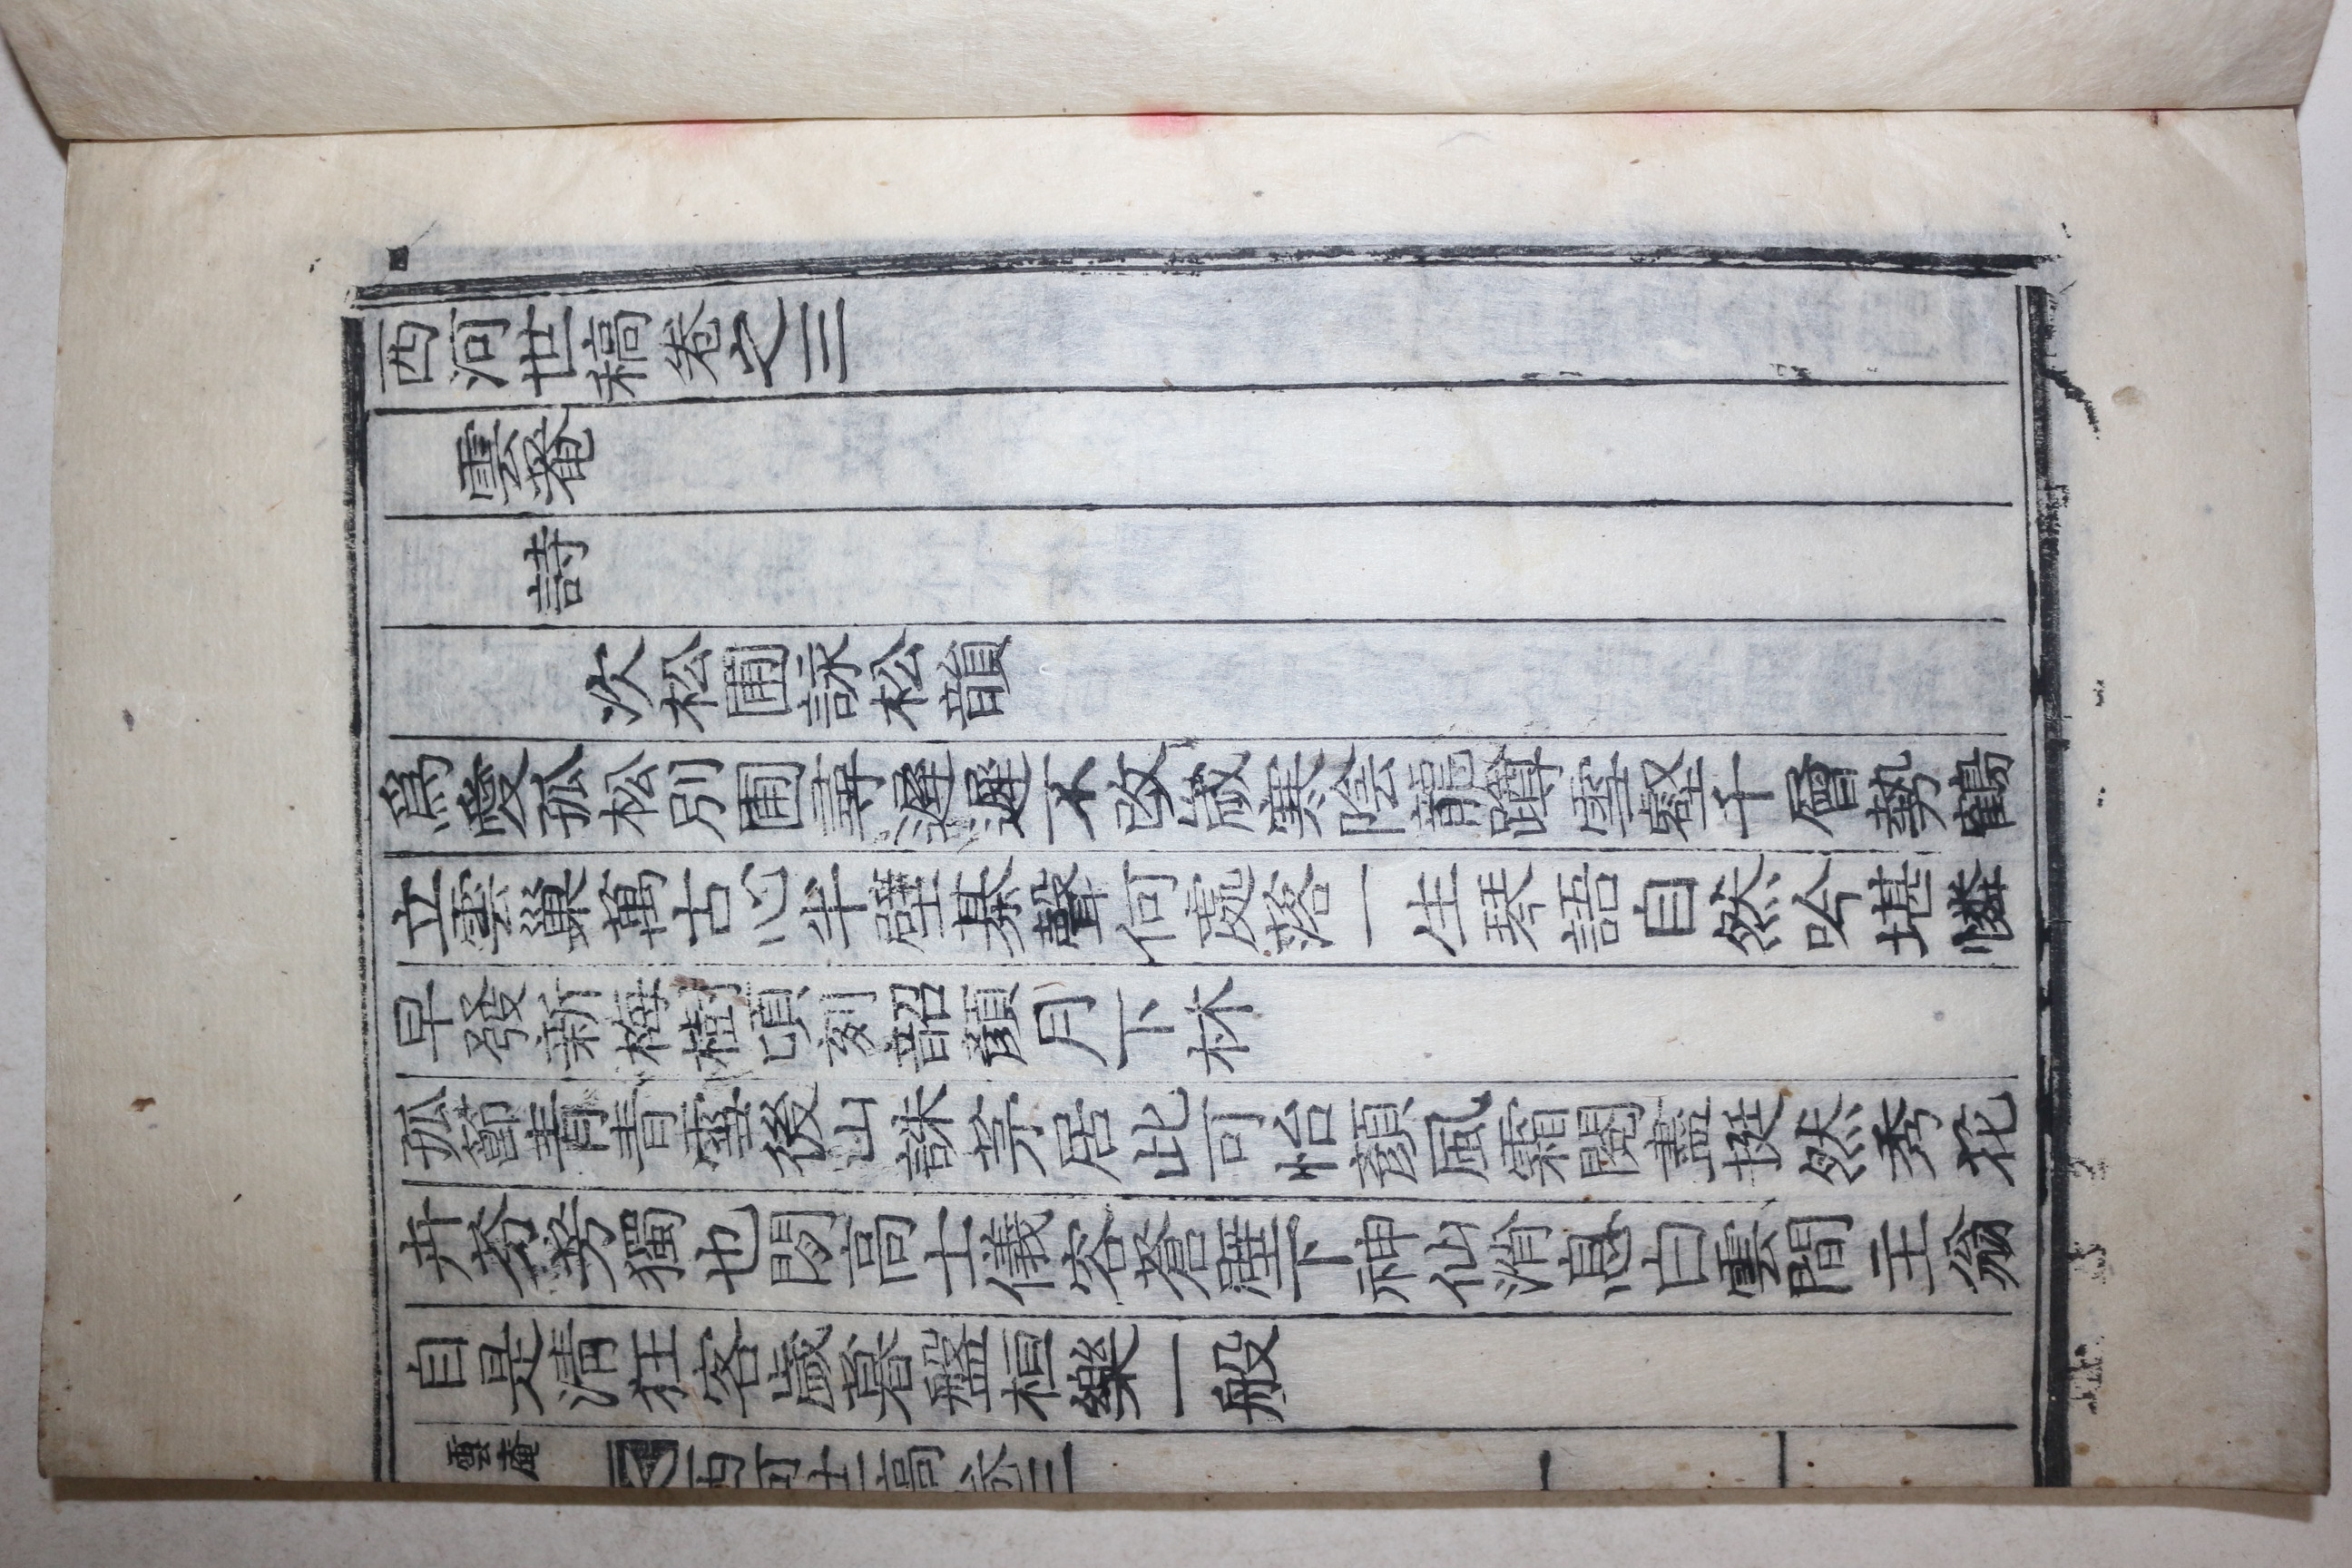 西河世稿卷之三
雲菴
詩
次松圃詠松韻
爲愛孤松別圃尋遲遲不改歲寒陰龍蹲雪壑千層勢鶴
立雲巢萬古心半壁棊聲何處落一生琴語自然吟堪憐
早發新梅樹頃刻韶顏月下林
孤節青青雪後山誅茅居此可怡顏風霜閱盡挺然秀花
卉芬芳獨也閒高士儀容蒼壁下神仙消息白雲間主翁
自是淸狂客歲暮盤桓樂一般
雲庵 西河世稿卷三 一